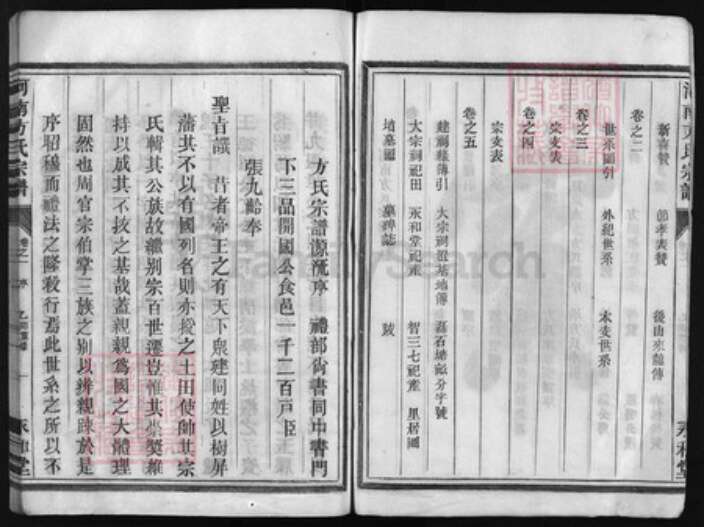 河南方氏宗譜
新喜贊 節孝表贊 後山來龍傳
卷之二
世系圖引 外紀世系 本支世系
卷之三
宗支表
卷之四
宗支表
卷之五
建祠綠傳引 大宗祠源基地傳 磊石墩畝分字號
大宗祠祀田 永和堂祀產 智三七祀產 里居圖
墳墓圖 墓碑誌 跋
永和堂
方氏宗譜源流序 禮部尚書同中書門
下三品開國公食邑一千二百戶臣
張九齡奉
聖旨譔 昔者帝王之有天下衆建同姓以樹屏
藩其不以有國列名則亦授之土田使帥其宗
氏輯其公族故繼別宗百世遷豈惟其夾獎維
持以成其不拔之基哉蓋親親爲國之大體理
固然也周官宗伯掌三族之別以辨親疎於是
序昭穆而禮法之隆殺行焉此世系之所以不
河南方氏宗譜
卷之一 序
永和堂
FamilySearch